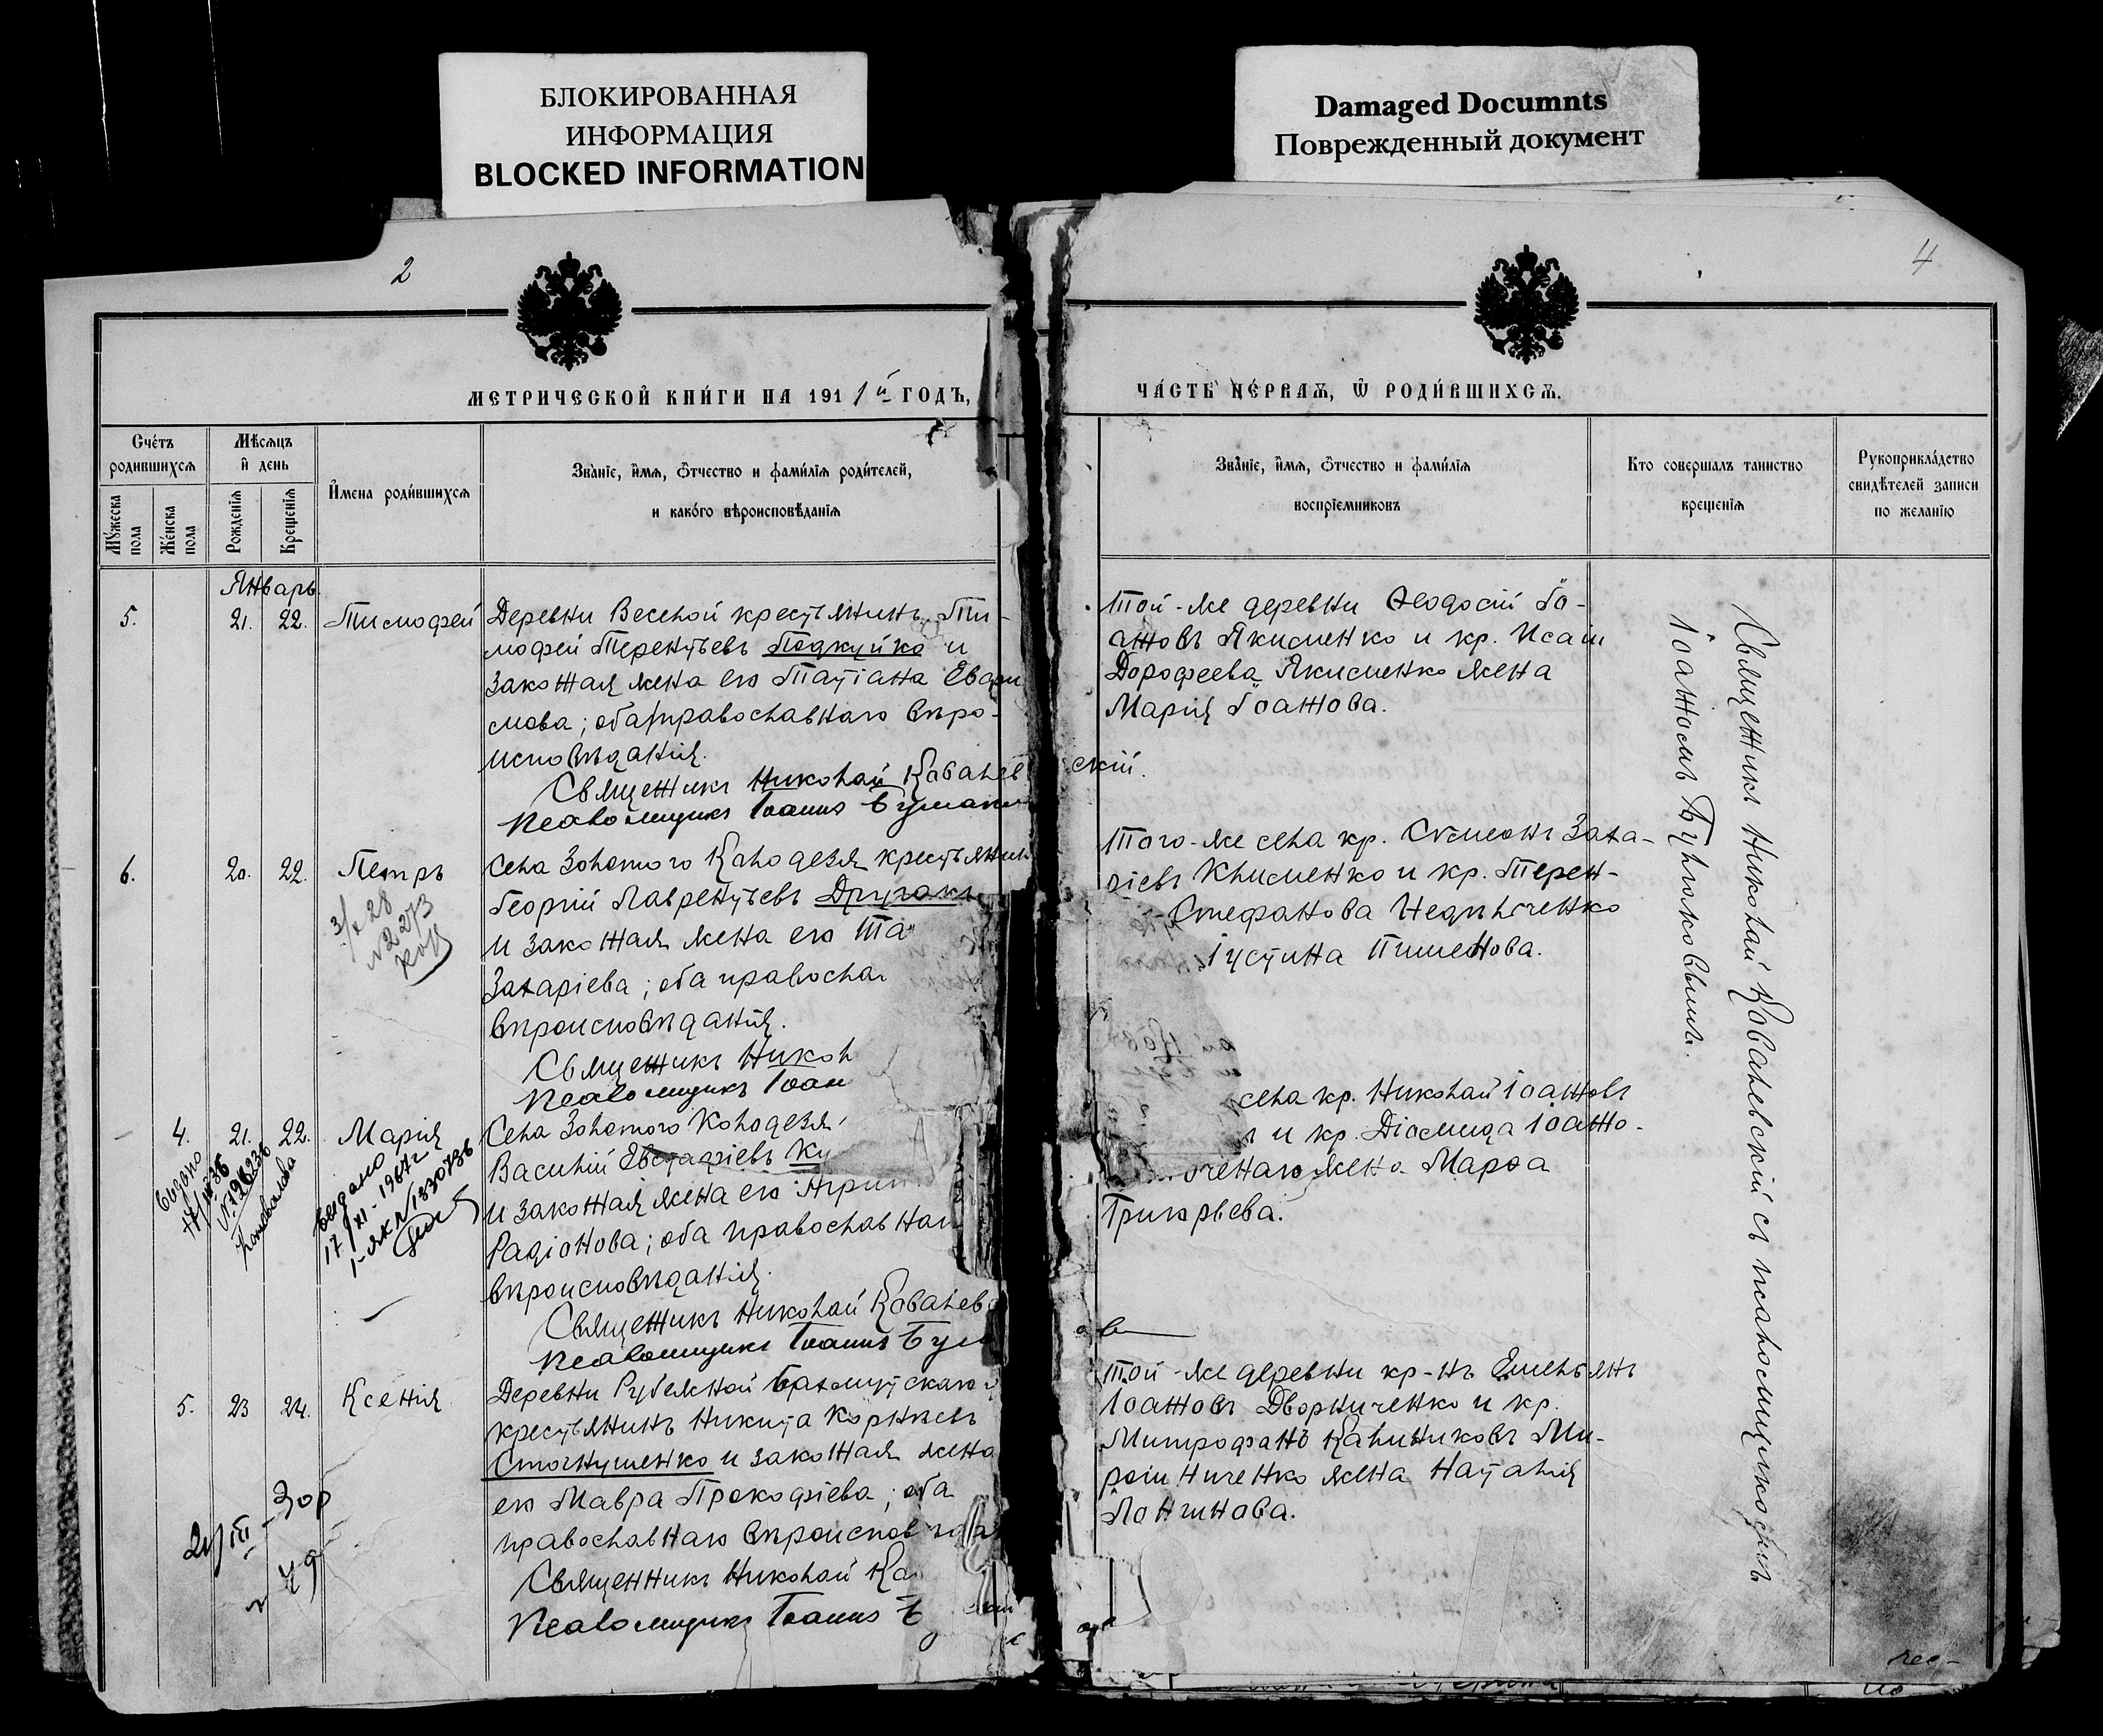 БЛОКИРОВАННАЯ
ИНФОРМАЦИЯ
BLOCKED INFORMATION
Damaged Documnts
Поврежденный документ
2
4
МЕТРИЧЕСКОЙ КНИ́ГИ НА 1911й ГОДЪ,
ЧА́СТЬ ПЕ́РВАѦ, Ѿ РОДИ́ВШИХСѦ.
Сче́тъ
родившихсѧ
Мѣсѧцъ
и҆ день
Мꙋжеска
пола
Женска
пола
Рожденїѧ
Крещенїѧ
И҆мена роди́вшихсѧ
Зва́нїе, и҆́мѧ, ѻ҆́тчество и фами́лїѧ роди́телей,
и како́го вѣроисповѣ́данїѧ
Зва́нїе, и҆́мѧ, ѻ҆́тчество и фами́лїѧ
воспрїемниковъ
Кто совершалъ таинство
крещенїѧ
Рукоприкла́дство
свидѣтелей записи
по желанїю
Январь.
5.
21.
22.
Тимофей
Деревни Веселой крестьянинъ Ти-
мофей Терентьевъ Подкуйко и
законная жена его Татіана Евфи
мова; оба православнаго вѣро-
исповѣданія.
Священникъ Николай Ковалев
скій.
Псаломщикъ Іоаннъ
Той-же деревни Ѳеодосій Іо-
анновъ Якименко и кр. Исаіи
Дорофеева Якименко жена
Марія Іоаннова.
6.
20.
22.
Петръ
3/X 28
№2273
Села Золотого Колодезя крестьянин
Георгій Лаврентьевъ Другакъ
и законная жена его Та
Захаріева; оба правосла
вѣроисповѣданія.
Священникъ Никол
Псаломщикъ Іоан
Того-же села кр. Сѵмеонъ Заха-
ріевъ Клименко и кр. Терен-
Стефанова Недѣльченко
Іустина Пименова.
4.
21.
22.
Марія
Выдано
№ 196236
Выдано
17/XI-1967г
І-ЯК №1330736
Села Золотого Колодезя
Василій Евстафіевъ Ку
и законная жена его Агрип
Радіонова; оба православнаг
вѣроисповѣданія.
Священникъ Николай Ковалев
Псаломщикъ Іоаннъ
села кр. Николай Іоанновъ
и кр. Діомида Іоанно-
жена Марѳа
Григорьева.
5.
23
24.
Ксенія
№ 79
Деревни Рубежной Бахмутскаго у
крестьянинъ Никита Корнѣевъ
Стогнушенко и законная жена
его Мавра Прокофіева; оба
православнаго вѣроисповѣда
Священникъ Николай Ко
Псаломщикъ Іоаннъ
Той-же деревни кр-нъ Емельянъ
Іоанновъ Дворниченко и кр.
Митрофанъ Калиниковъ Ми-
рошниченко жена Наталія
Лонгинова.
Священникъ Николай Ковалевскій съ псаломщикомъ
Іоанномъ